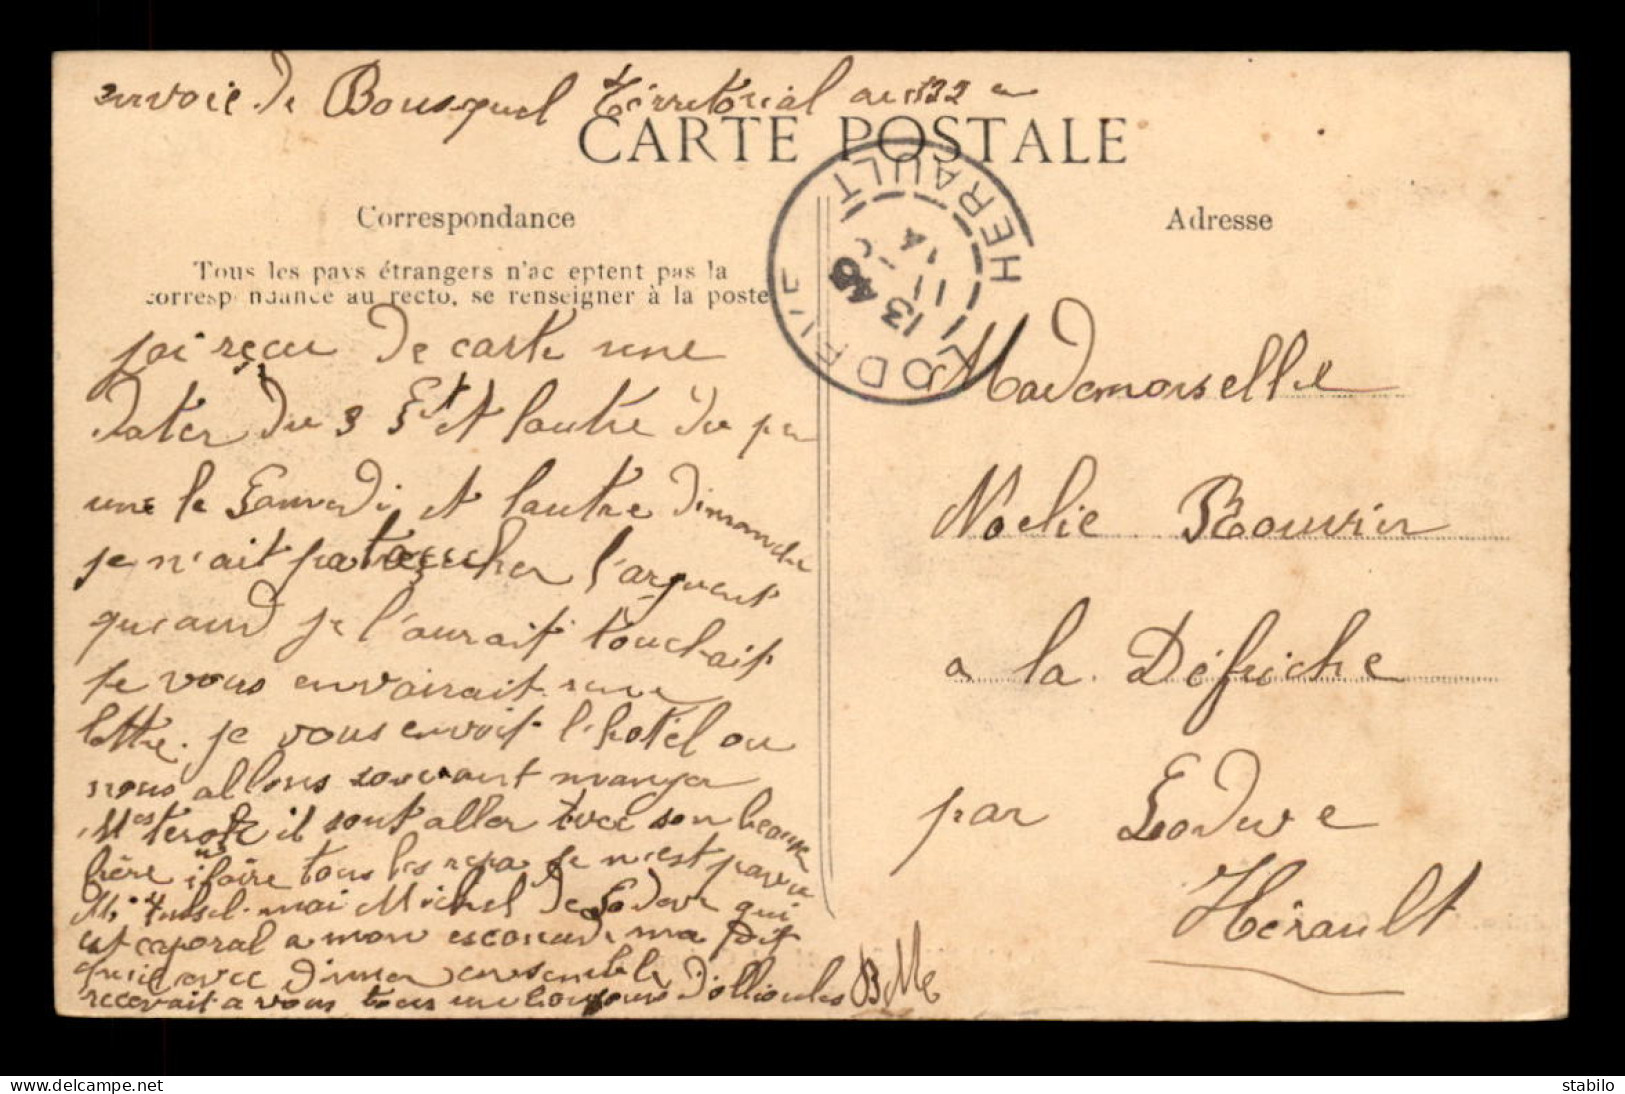 envoie de Bousquel Térritorial au 122 e
CARTE POSTALE
Correspondance
Tous les pays étrangers n'ac eptent pas la
corresp ndance au recto, se renseigner à la poste
jai reçeu De carte une
Dater Du 3 Et Et lautre Du
une le Samedi et lautre dimanche
je n'ait pa toucher l'arguent
queand je l'aurait touchait
je vous envairait une
lettre. je vous envoit l'hotel ou
nous allons souvant manger
Mes il sont aller avec son beau
frère faire tous les repa je n'est pa vu
M. mai Michel De Lodeve qui
est caporal a mon escouade ma
quil avec Diner ensemble
recevait a vous tous une Dollioules BMe
LODEVE HERAULT
13
11
14
Adresse
Mademoiselle
Noelie Rouvier
a la Défriche
par Lodeve
Hérault
delcampe.net
stabilo